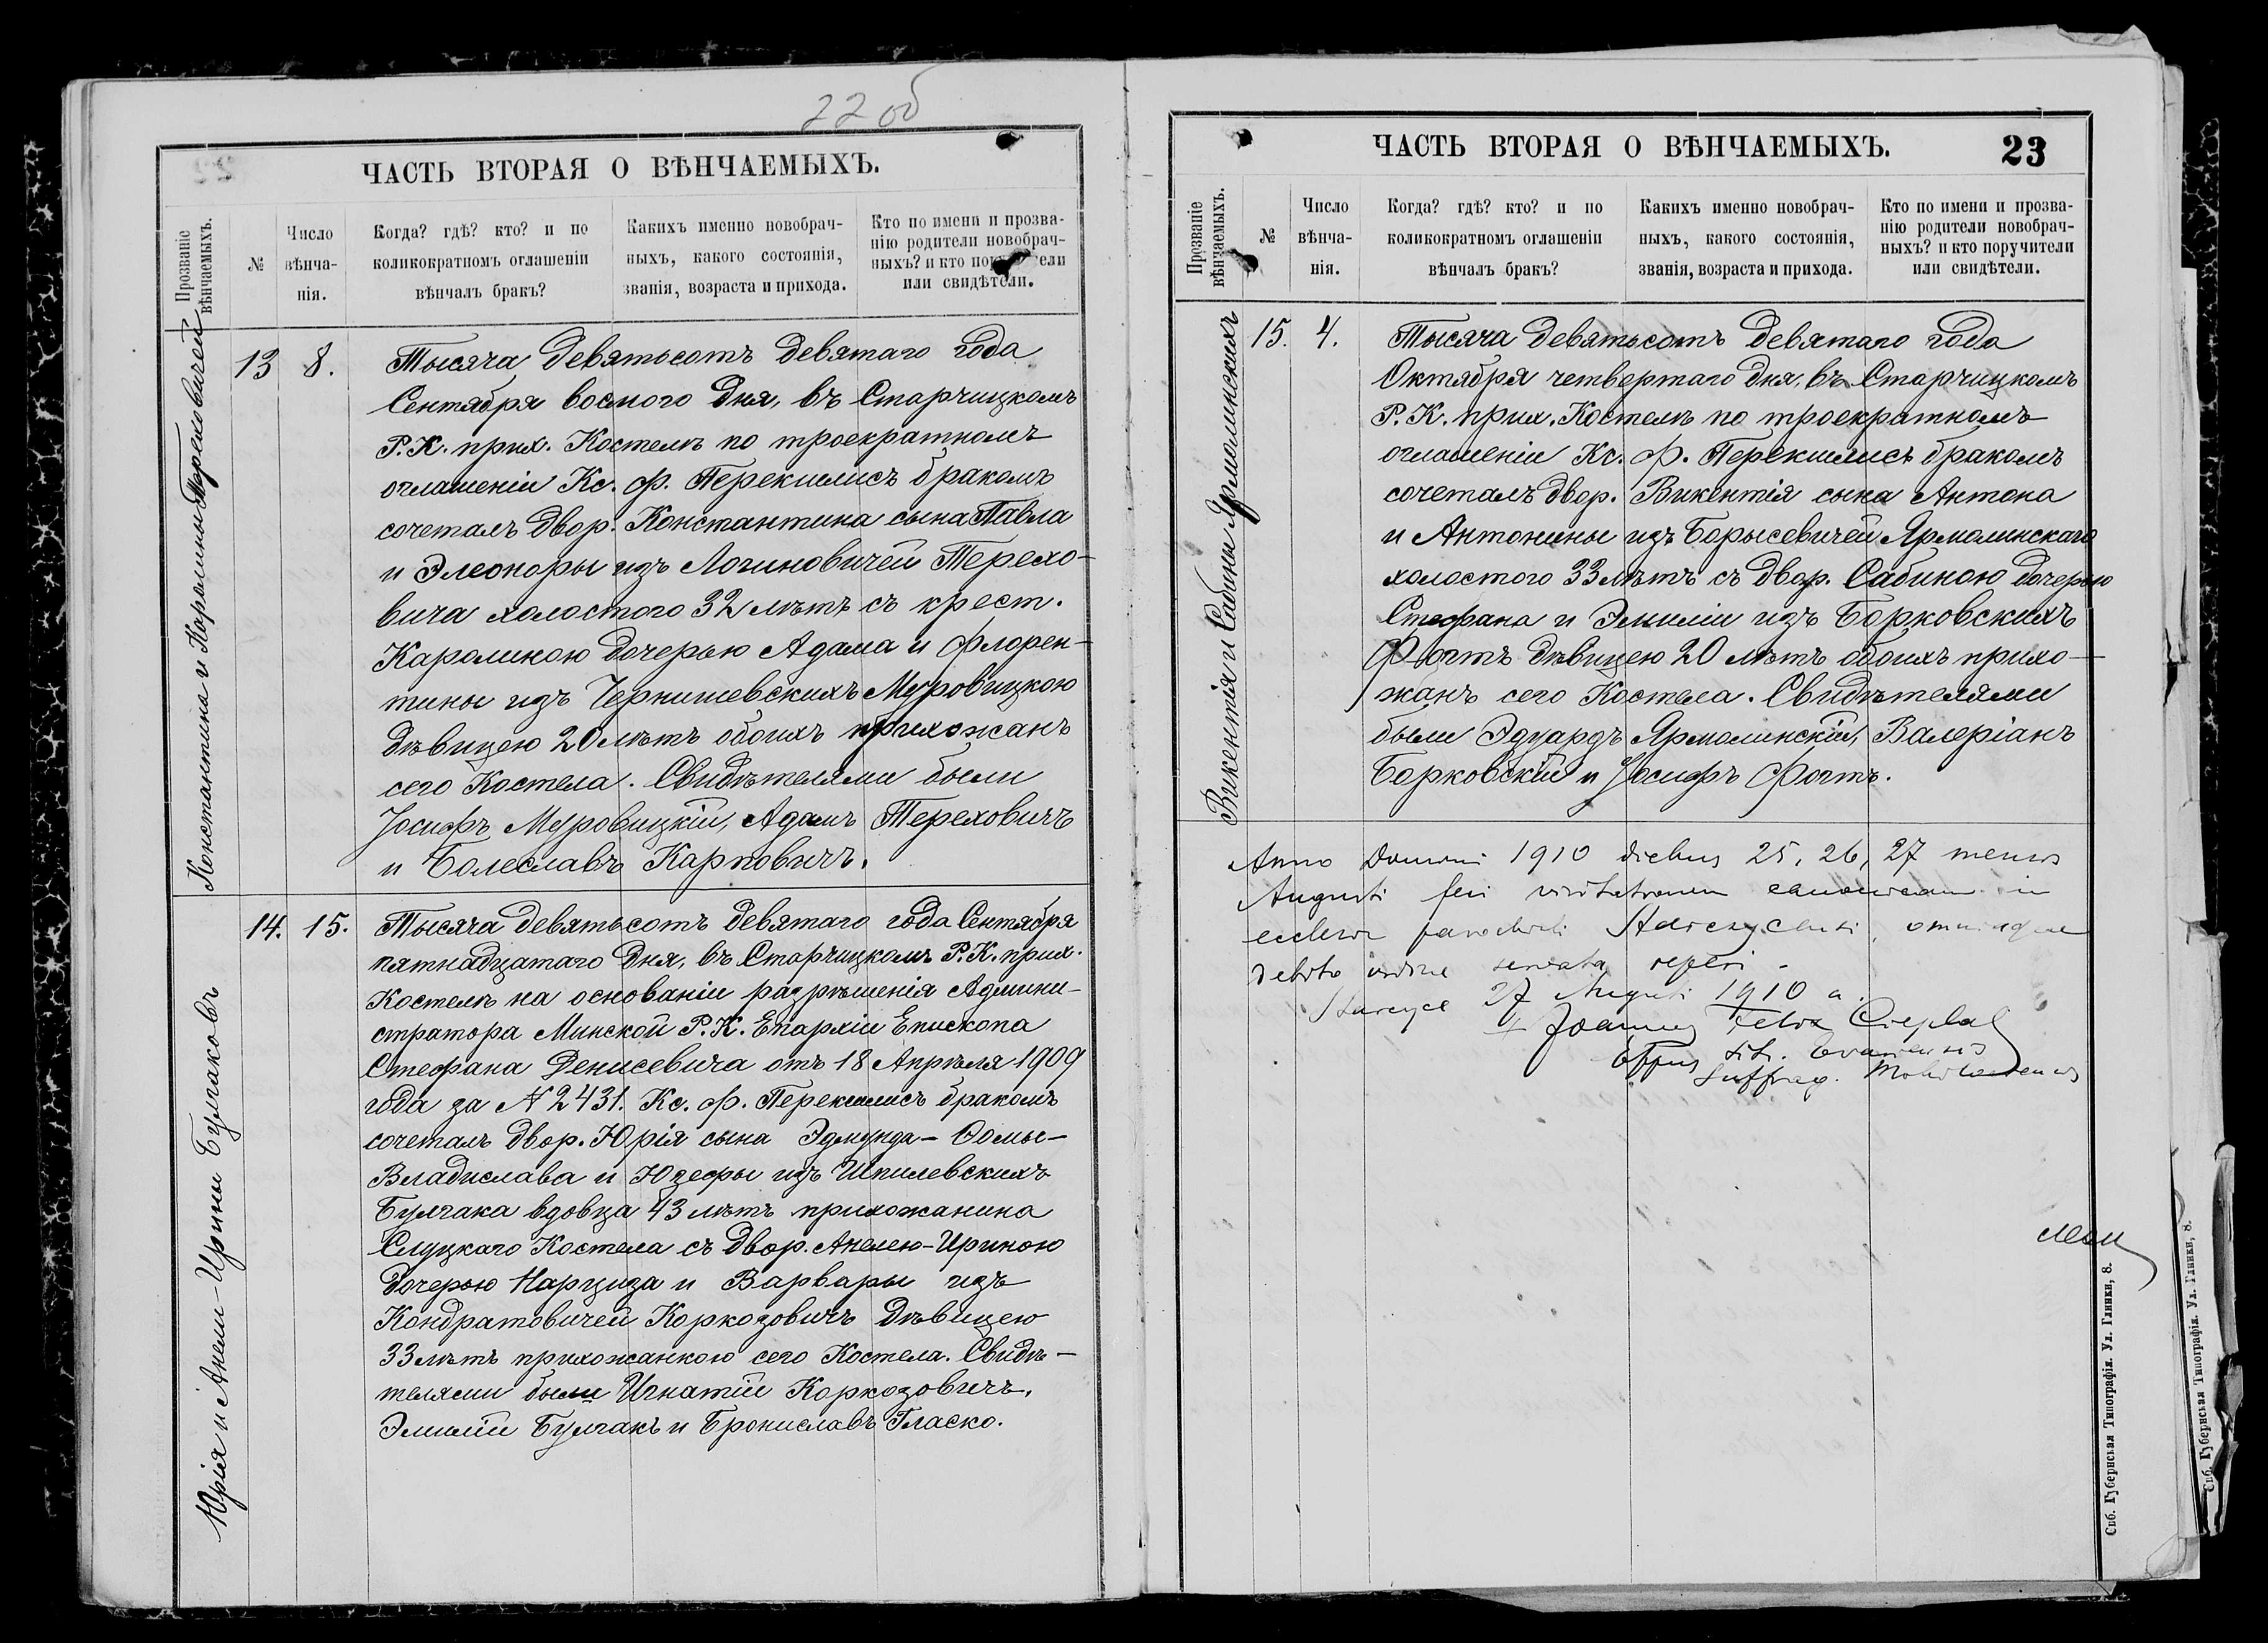 22 об
ЧАСТЬ ВТОРАЯ О ВѢНЧАЕМЫХЪ.
Прозваніе вѣнчаемыхъ.
№
Число вѣнча-нія.
Когда? гдѣ? кто? и по
коликократномъ оглашеніи
вѣнчалъ бракъ?
Какихъ именно новобрач-
ныхъ, какого состоянія,
званія, возраста и прихода.
Кто по имени и прозва-
нію родители новобрач-
ныхъ? и кто поручители
или свидѣтели.
Константина и Каролины Тереховичей
13 8.
Тысяча девятьсотъ девятаго года
Сентября восмого дня, въ Старчицкомъ
Р.К. прих. Костелѣ по троекратномъ
оглашеніи Кс. Ф. Перекшлисъ бракомъ
сочеталъ двор. Константина сына Павла
и Элеоноры изъ Логиновичей Терехо-
вича холостого 32 лѣтъ съ крест.
Каролиною дочерью Адама и Флорен-
тины изъ Чернишевскихъ Муровицкою
дѣвицею 20 лѣтъ обоихъ прихожанъ
сего Костела. Свидѣтелями были
Іосифъ Муровицкій, Адамъ Тереховичъ
и Болеславъ Карповичъ.
Юрія и Анели-Ирины Булгаковъ
14. 15.
Тысяча девятьсотъ девятаго года Сентября
пятнадцатаго дня, въ Старчицкомъ Р.К. прих.
Костелѣ на основаніи разрѣшенія Админи-
стратора Минской Р.К. Епархіи Епископа
Стефана Денисевича отъ 18 Апрѣля 1909
года за N 2431. Кс. Ф. Перекшлисъ бракомъ
сочеталъ двор. Юрія сына Эдмунда-Ѳомы-
Владислава и Юзефы изъ Шпилевскихъ
Булгака вдовца 43 лѣтъ прихожанина
Слуцкаго Костела съ двор. Анелею-Ириною
дочерью Нарциза и Варвары изъ
Кондратовичей Коркозовичъ дѣвицею
33 лѣтъ прихожанкою сего Костела. Свидѣ-
телями были Игнатій Коркозовичъ,
Эмилій Булгакъ и Брониславъ Гласко.
ЧАСТЬ ВТОРАЯ О ВѢНЧАЕМЫХЪ.
23
Прозваніе вѣнчаемыхъ.
№
Число вѣнча-нія.
Когда? гдѣ? кто? и по
коликократномъ оглашеніи
вѣнчалъ бракъ?
Какихъ именно новобрач-
ныхъ, какого состоянія,
званія, возраста и прихода.
Кто по имени и прозва-
нію родители новобрач-
ныхъ? и кто поручители
или свидѣтели.
Викентія и Сабины Ярмолинскихъ
15. 4.
Тысяча девятьсотъ девятаго года
Октября четвертаго дня, въ Старчицкомъ
Р.К. прих. Костелѣ по троекратномъ
оглашеніи Кс. Ф. Перекшлисъ бракомъ
сочеталъ двор. Викентія сына Антона
и Антонины изъ Борысевичей Ярмолинскаго
холостого 33 лѣтъ съ двор. Сабиною дочерью
Стефана и Эмиліи изъ Борковскихъ
Фогтъ дѣвицею 20 лѣтъ обоихъ прихо-
жанъ сего Костела. Свидѣтелями
были Эдуардъ Ярмолинскій, Валеріанъ
Борковскій и Іосифъ Фогтъ.
Anno Domini 1910 diebus 25, 26, 27 mensis
Augusti feci visitationem canonicam in
ecclesia parochiali omniaque
debito ordine servata reperi.
Starczyce 27 Augusti 1910 a.
+ Joannes Felix Cieplak
Eppus tit. Evariensis
Suffrag. Mohiloviensis
Спб. Губернская Типографія. Ул. Глинки, 8.
Спб. Губернская Типографія. Ул. Глинки, 8.